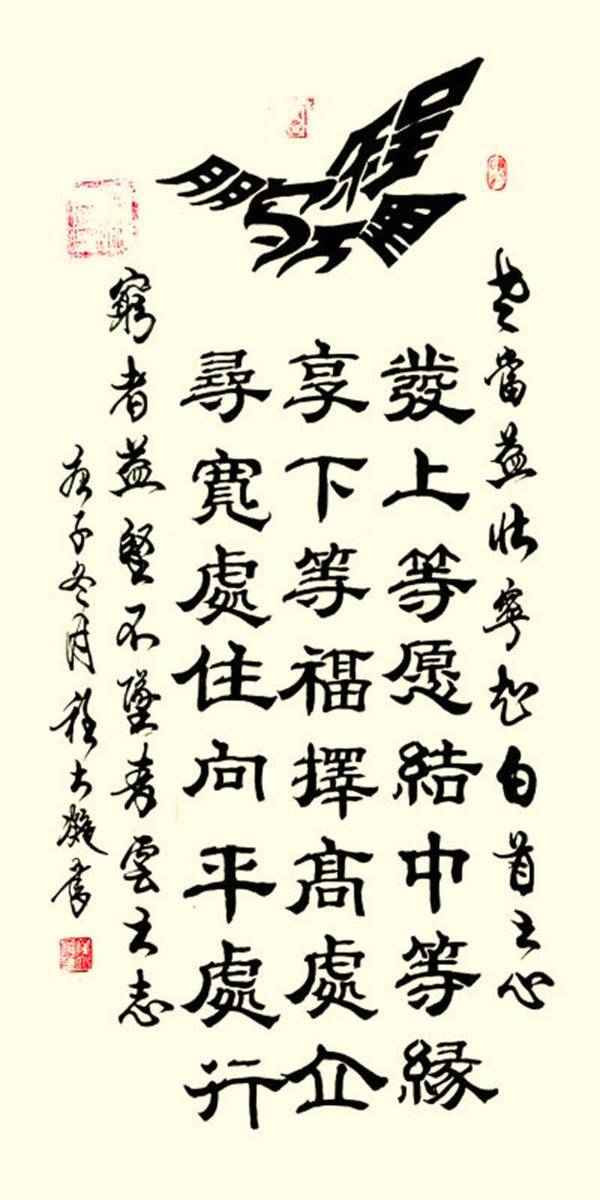 老當益壯寧知白首之心
發上等愿結中等緣
享下等福擇高處立
尋寬處住向平處行
窮者益堅不墜青雲之志
庚子冬月程書